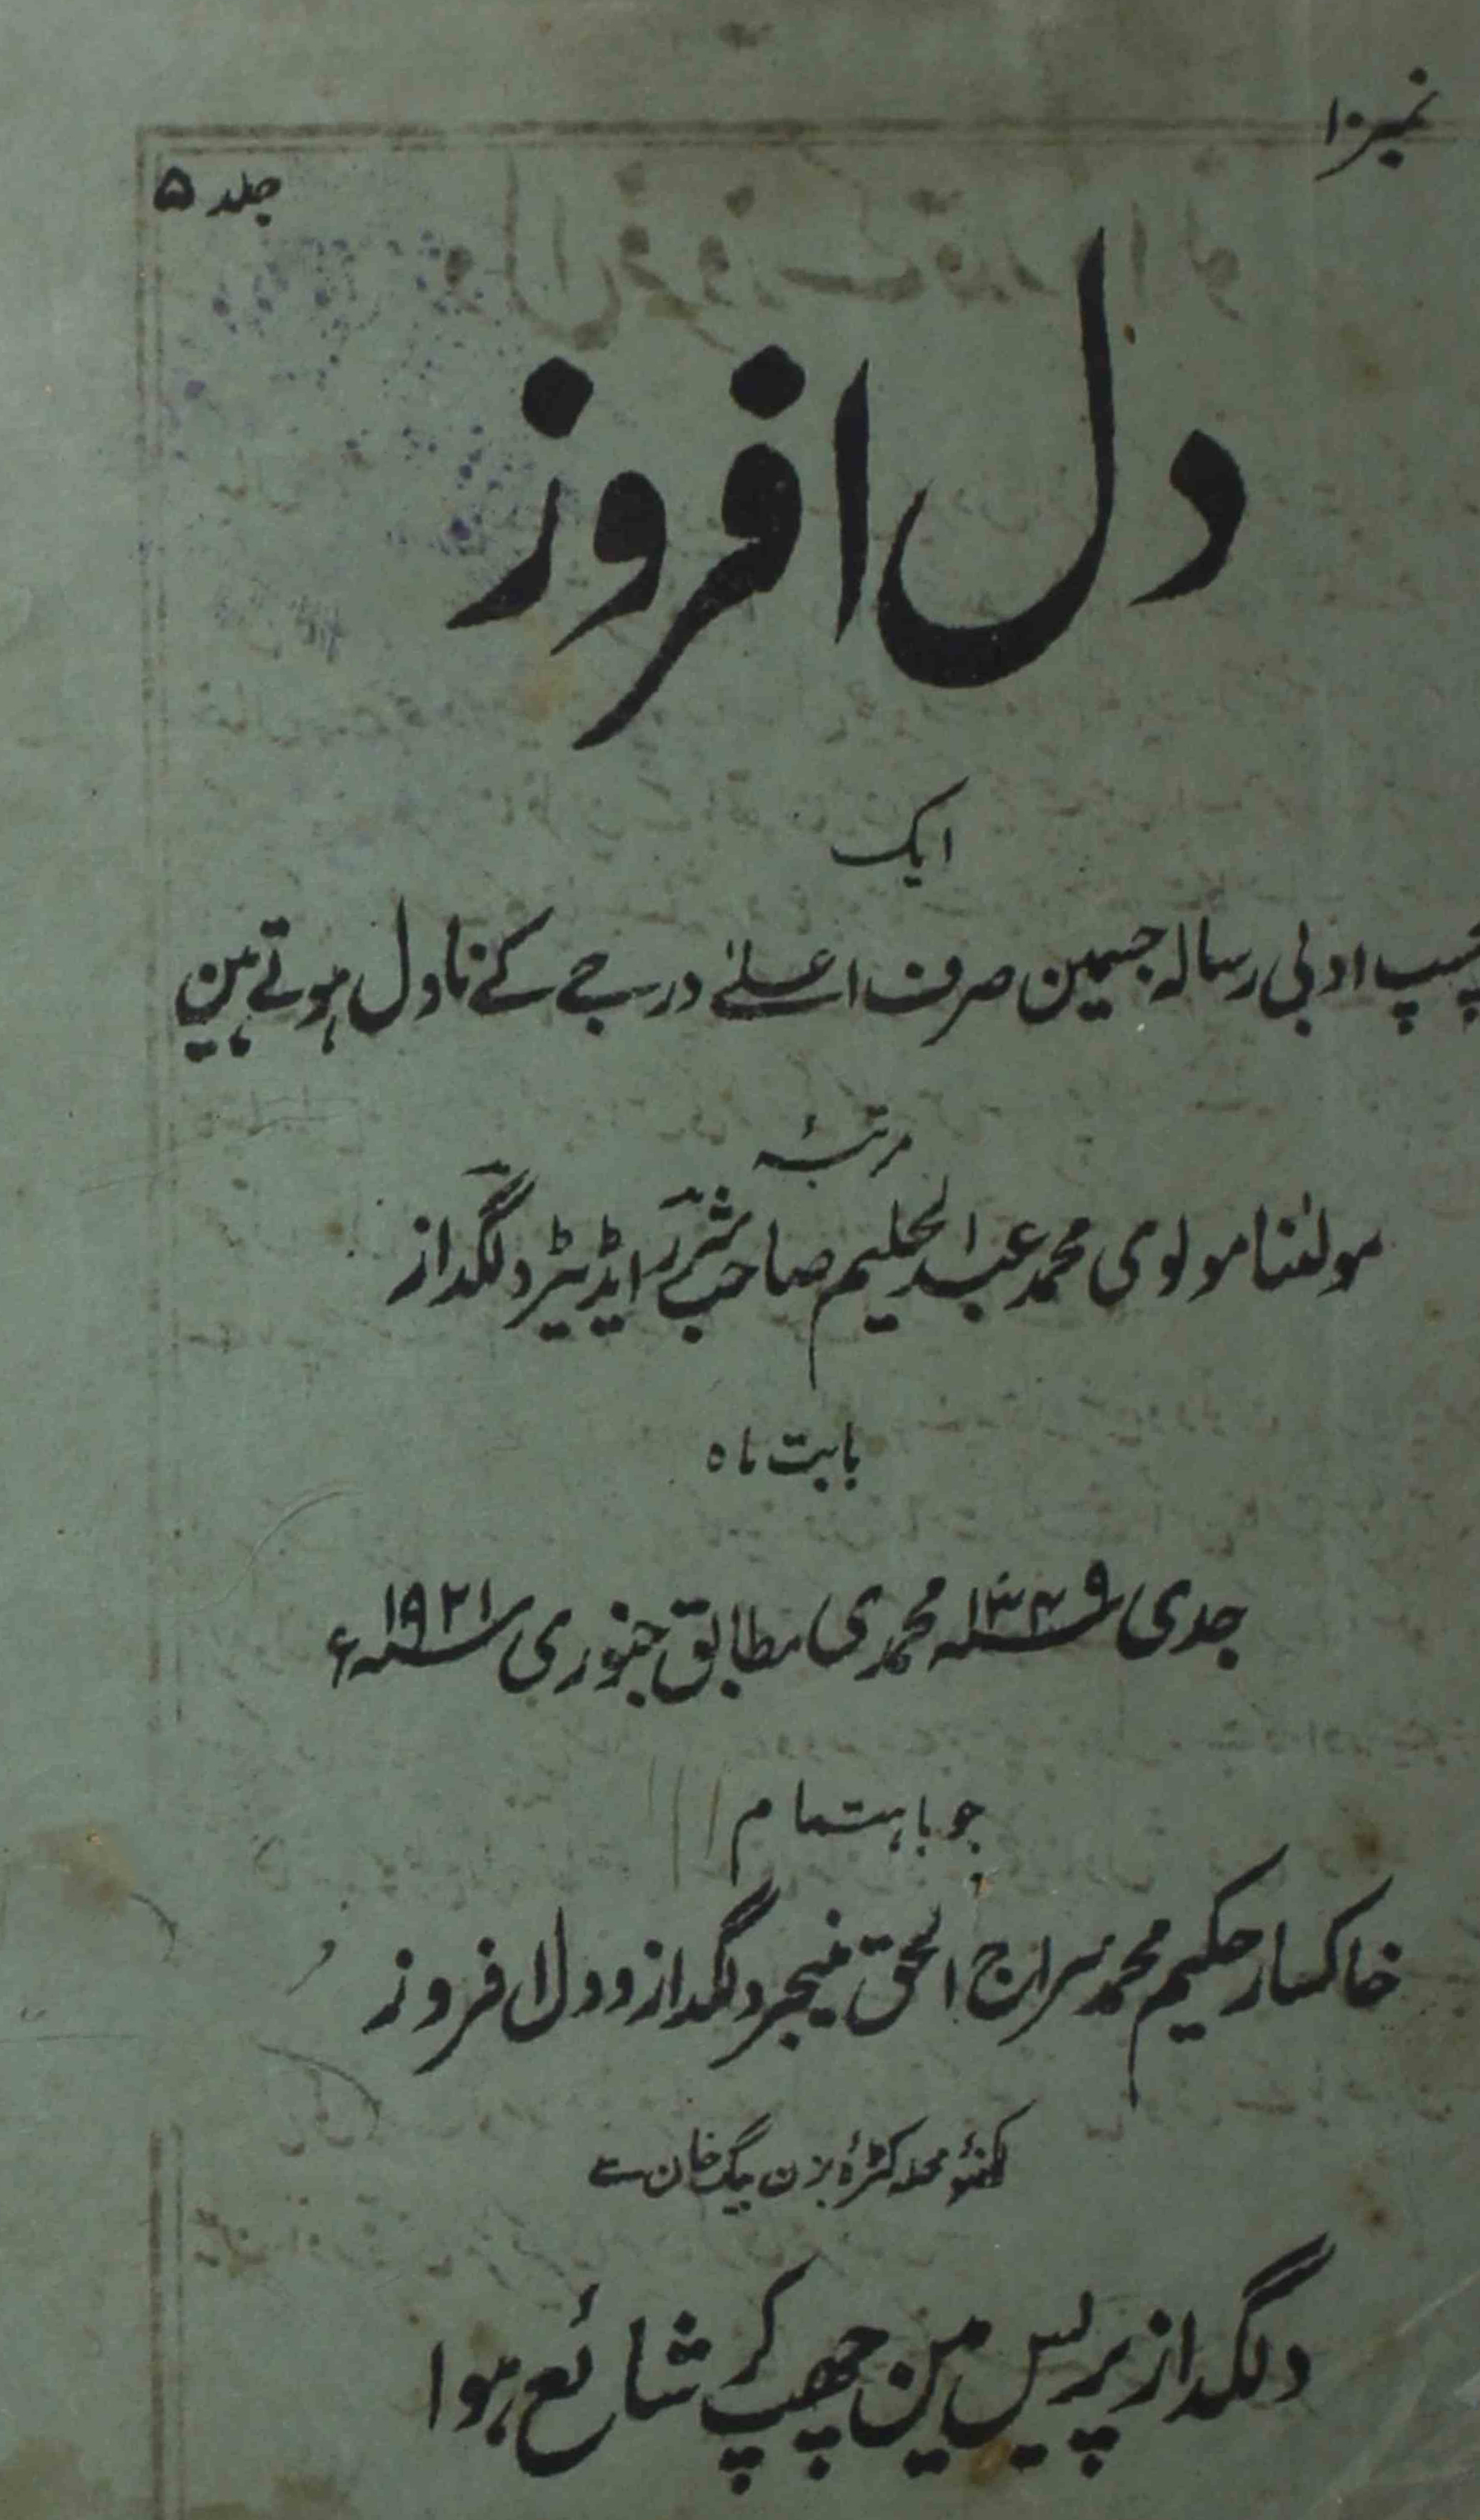 نمبر ۱۰
جلد ۵
دل افروز
ایک
ادبی رسالہ جسمین صرف اعلےٰ درجے کے ناول ہوتے ہین
مرتبۂ
مولٰنا مولوی محمد عبدالحلیم صاحب شرر ایڈیٹر دلگداز
بابت ماہ
جدی ۱۳۴۹؁ محمدی مطابق جنوری ۱۹۲۱؁ء
جو باہتمام
خاکسار حکیم محمد سراج الحق منیجر دلگداز و دل افروز
لکھنؤ محلہ کٹرۂ بزن بیگ خان سے
دلگداز پریس مین چھپ کر شائع ہوا